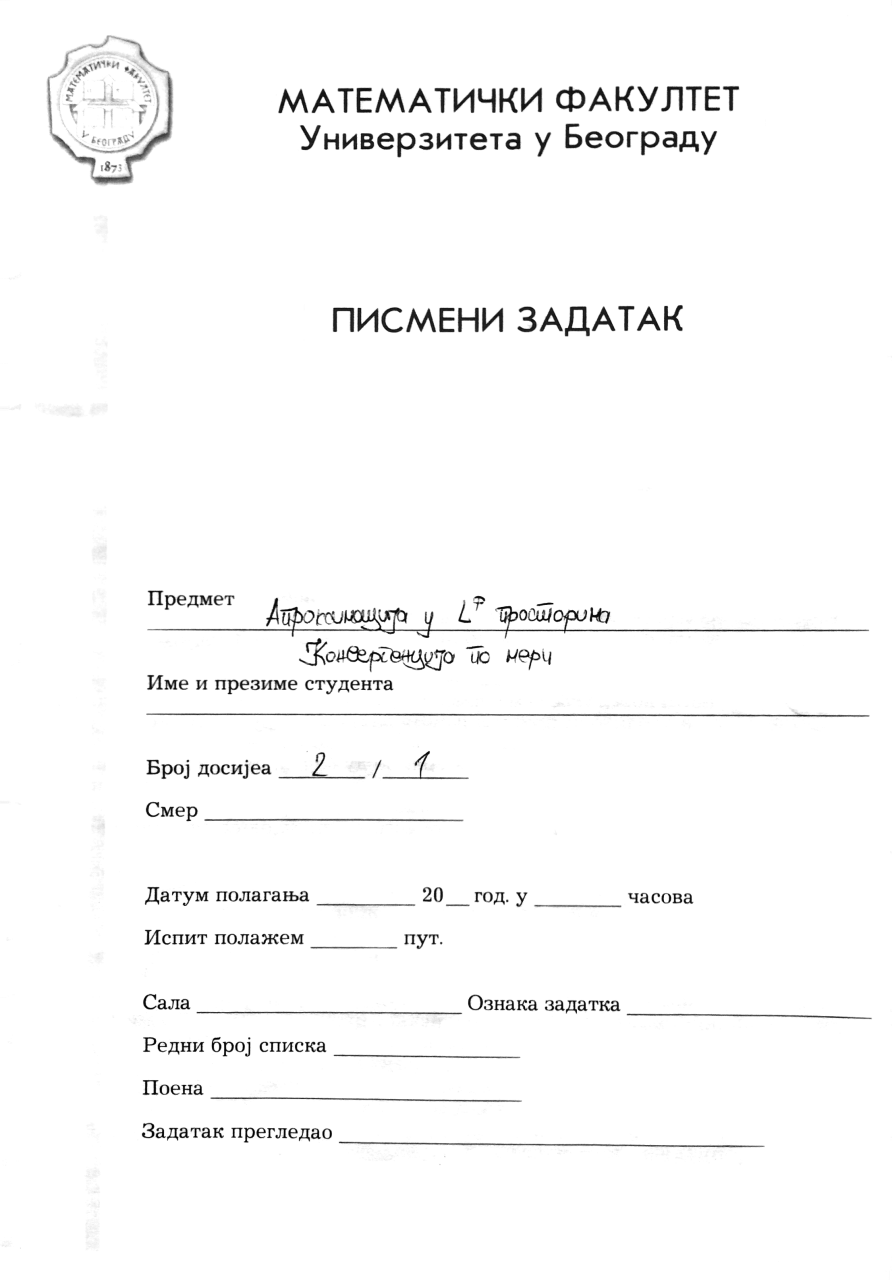 МАТЕМАТИЧКИ ФАКУЛТЕТ
У БЕОГРАДУ
1873
МАТЕМАТИЧКИ ФАКУЛТЕТ
Универзитета у Београду
ПИСМЕНИ ЗАДАТАК
Предмет Апроксимација у L^p просторима
Конвергенција по мери
Име и презиме студента
Број досијеа 2 / 1
Смер
Датум полагања 20 год. у часова
Испит полажем пут.
Сала Ознака задатка
Редни број списка
Поена
Задатак прегледао